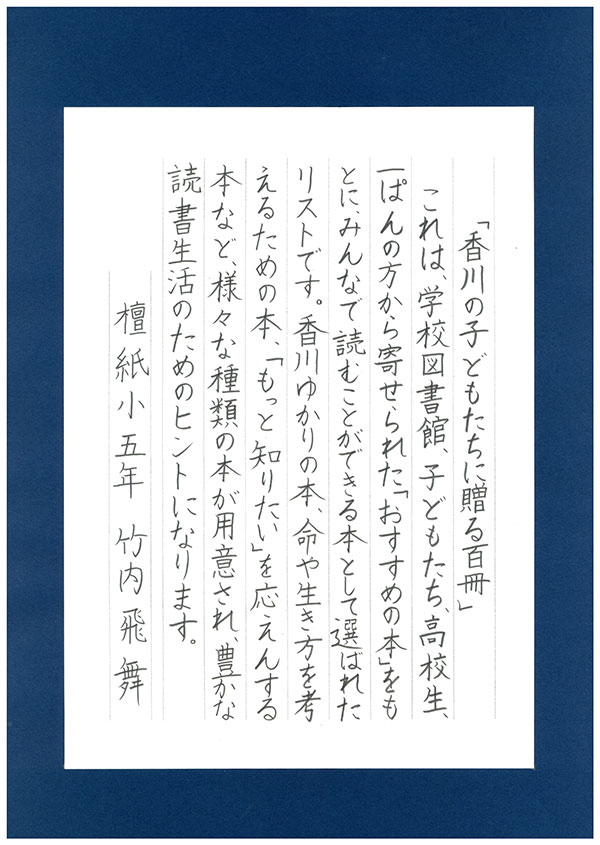 「香川の子どもたちに贈る百冊」
これは、学校図書館、子どもたち、高校生、
一ぱんの方から寄せられた「おすすめの本」をも
とに、みんなで読むことができる本として選ばれた
リストです。香川ゆかりの本、命や生き方を考
えるための本、「もっと知りたい」を応えんする
本など、様々な種類の本が用意され、豊かな
読書生活のためのヒントになります。
檀紙小五年 竹内飛舞